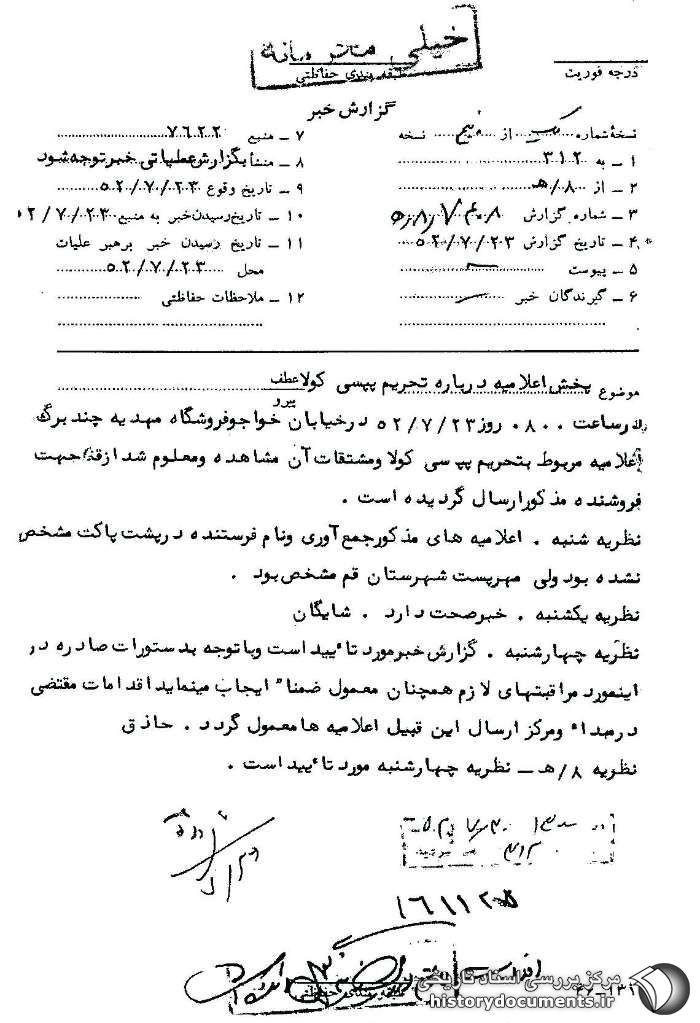 خیلی محرمانه
طبقه بندی حفاظتی
درجه فوریت
گزارش خبر
نسخهٔ شماره یک از پنج نسخه
۱ ـ به ۳۱۲
۲ ـ از ۸/هـ
۳ ـ شماره گزارش
*۴ ـ تاریخ گزارش ۵۲/۷/۲۳
۵ ـ پیوست
۶ ـ گیرندگان خبر
۷ ـ منبع ۷۶۲۲
۸ ـ منشأ بگزارش عملیاتی خبر توجه شود
۹ ـ تاریخ وقوع ۵۲/۷/۲۳
۱۰ ـ تاریخ رسیدن خبر به منبع ۵۲/۷/۲۳
۱۱ ـ تاریخ رسیدن خبر برهبر عملیات
محل ۵۲/۷/۲۳
۱۲ ـ ملاحظات حفاظتی
موضوع پخش اعلامیه درباره تحریم پپسی کولا عطف
پیرو
درساعت ۰۸۰۰ روز ۵۲/۷/۲۳ درخیابان خواجو فروشگاه مهدیه چند برگ
اعلامیه مربوط بتحریم پپسی کولا ومشتقات آن مشاهده ومعلوم شد ازقم جهت
فروشنده مذکور ارسال گردیده است .
نظریه شنبه . اعلامیه های مذکور جمع آوری ونام فرستنده درپشت پاکت مشخص
نشده بود ولی مهرپست شهرستان قم مشخص بود .
نظریه یکشنبه . خبر صحت دارد . شایگان
نظریه چهارشنبه . گزارش خبر مورد تائید است وبا توجه بدستورات صادره در
اینمورد مراقبتهای لازم همچنان معمول ضمنا" ایجاب مینماید اقدامات مقتضی
درمبداء ومرکز ارسال این قبیل اعلامیه ها معمول گردد . حاذق
نظریه ۸/هـ ـ نظریه چهارشنبه مورد تائید است .
طبقه بندی حفاظتی
مرکز بررسی اسناد تاریخی
historydocuments.ir